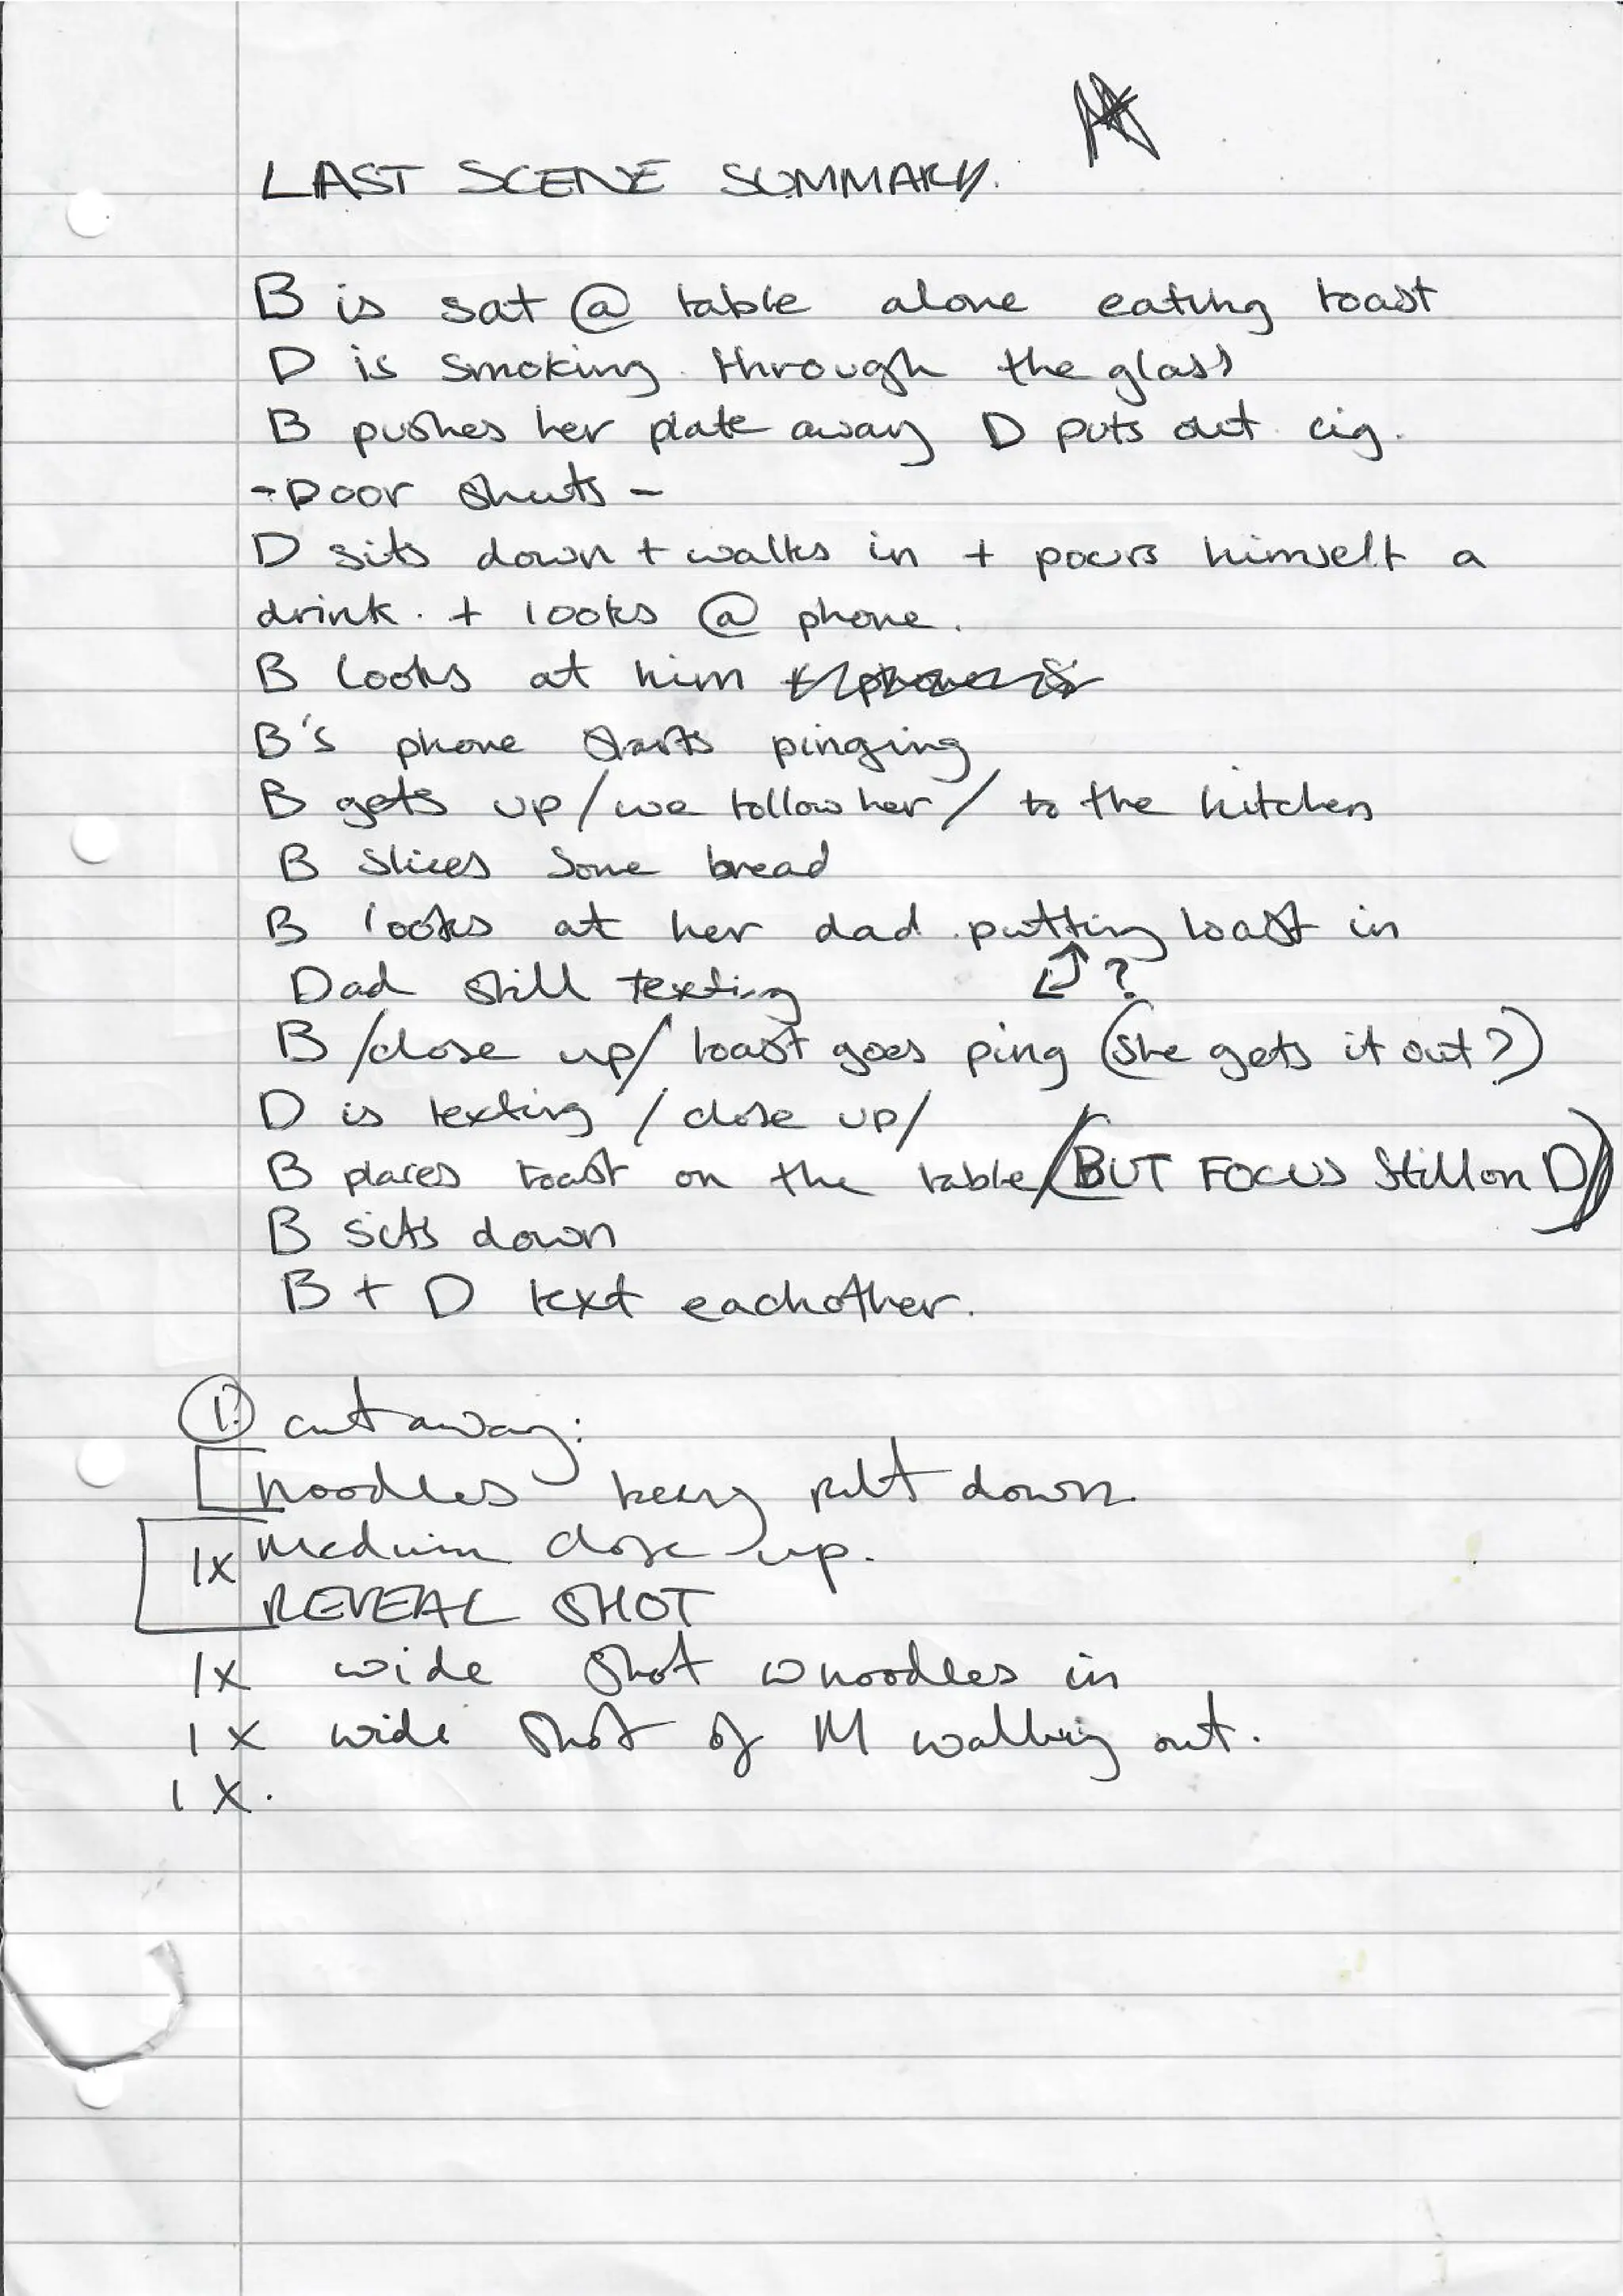 LAST SCENE SUMMARY.
B is sat @ table alone eating toast
D is smoking through the glass
B pushes her plate away D puts out cig.
- Door shuts -
D sits down + walks in + pours himself a
drink. + looks @ phone.
B looks at him
B's phone starts pinging
B gets up / we follow her / to the kitchen
B slices some bread
B looks at her dad putting toast in
Dad still texting ?
B / close up / toast goes ping (she gets it out?)
D is texting / close up /
B places toast on the table / (BUT FOCUS still on D)
B sits down
B + D text eachother.
1. cut away:
noodles being put down.
1x medium close up.
REVEAL SHOT
1x wide shot w noodles in
1x wide shot of M walking out.
1x.